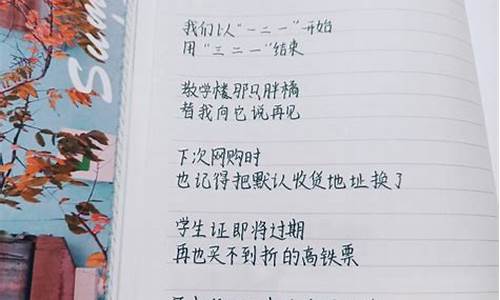 Sum
我们以“一二一”开始
用“三二一”结束
教学楼那只胖橘
替我向它说再见
下次网购时
也记得把默认收货地址换了
学生证即将过期
再也买不到折的高铁票